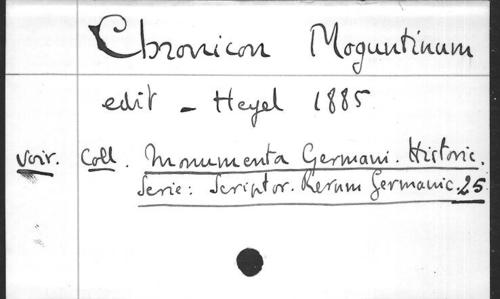 Chronicon Moguntinum
edit - Hegel 1885
voir. Coll. Monumenta Germani. Historic.
Serie: Scriptor. Rerum Germanic. 25